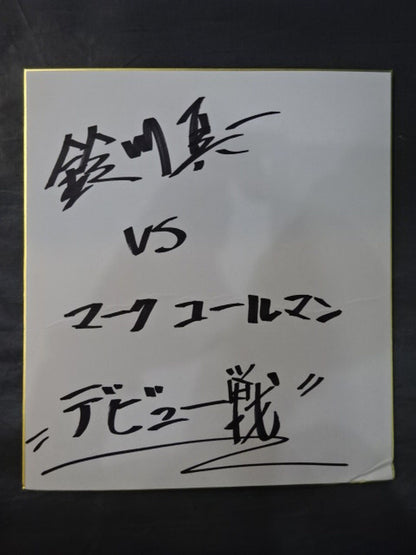 鈴川真一
VS
マーク コールマン
"デビュー戦"